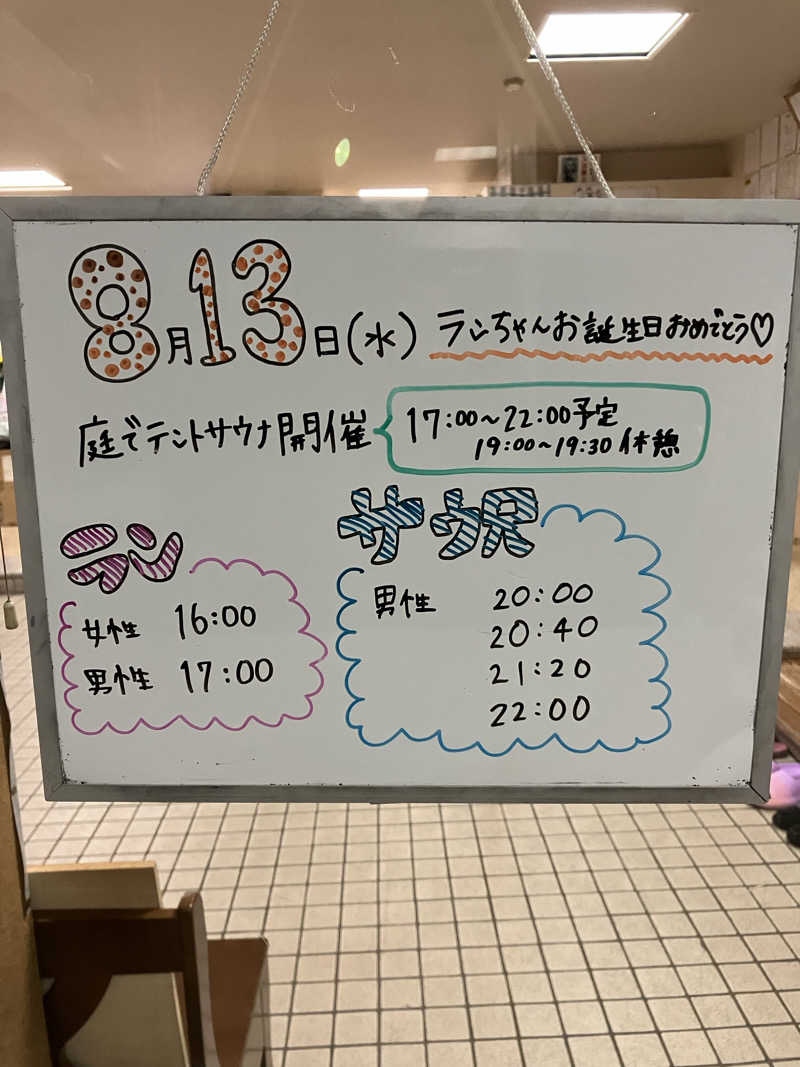 8月13日(水) ランちゃんお誕生日おめでとう♡
庭でテントサウナ開催 17:00~22:00予定
19:00~19:30 休憩
ラン
女性 16:00
男性 17:00
サウ尺
男性 20:00
20:40
21:20
22:00